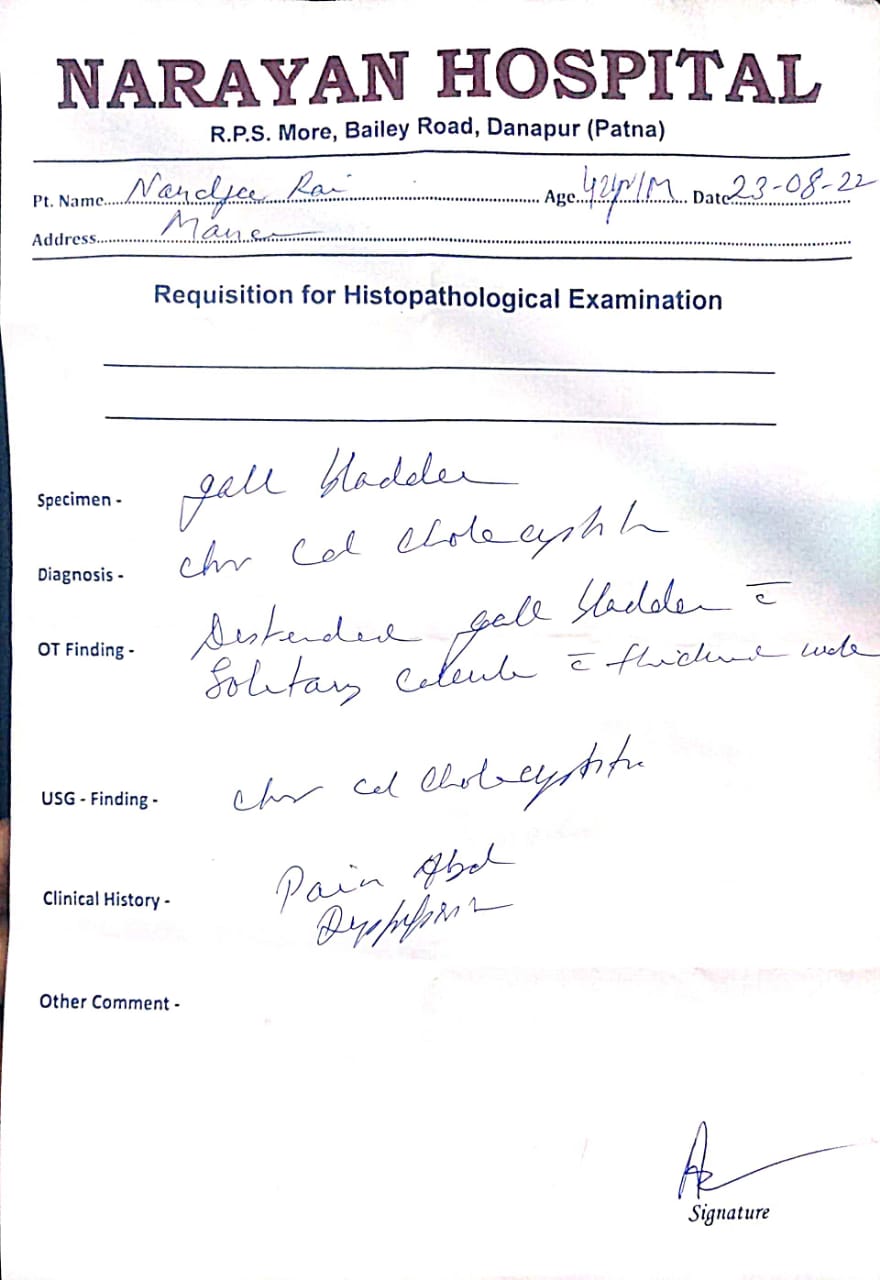 NARAYAN HOSPITAL
R.P.S. More, Bailey Road, Danapur (Patna)
Pt. Name.... Nandjee Rai .... Age.. 42yr/M .. Date 23-08-22
Address.... Maner ....
Requisition for Histopathological Examination
Specimen - gall bladder
Diagnosis - Chr Cal Cholecystitis
OT Finding - Distended gall bladder c̄
Solitary Calculi c̄ thickened
USG - Finding - Chr cal Cholecystitis
Clinical History - Pain Abd
Dyspepsia
Other Comment -
Signature